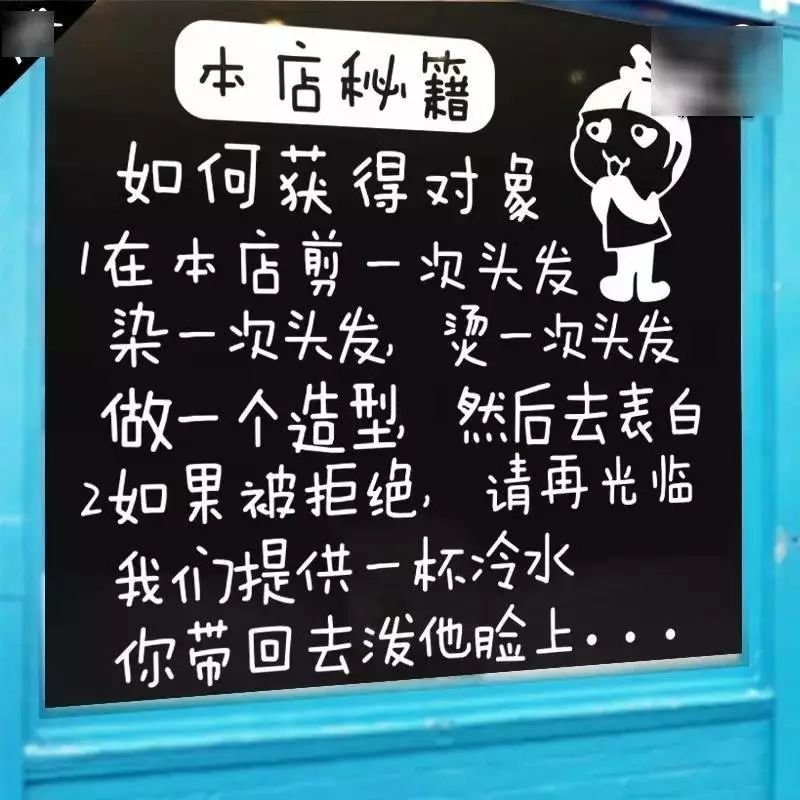 本店秘籍
如何获得对象
1在本店剪一次头发
染一次头发, 烫一次头发
做一个造型, 然后去表白
2如果被拒绝, 请再光临
我们提供一杯冷水
你带回去泼他脸上···